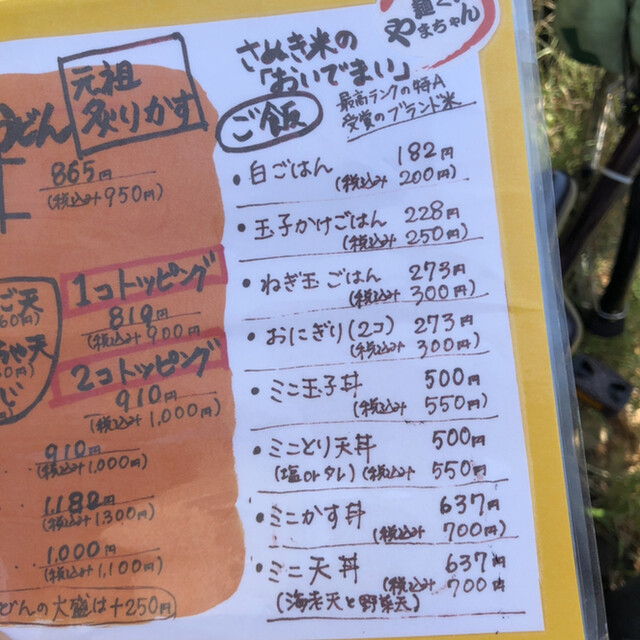 元祖
炙りかす
うどん
865円
(税込み950円)
1コトッピング
819円
(税込み900円)
2コトッピング
910円
(税込み1,000円)
ご天
60円)
天
910円
(税込み1,000円)
1,182円
(税込み1300円)
1,000円
(税込み1,100円)
どんの大盛は+250円)
やまちゃん
さぬき米の
「おいでまい」
ご飯
最高ランクの特A
受賞のブランド米
・白ごはん 182円
(税込み 200円)
・玉子かけごはん 228円
(税込み 250円)
・ねぎ玉ごはん 273円
(税込み 300円)
・おにぎり(2コ) 273円
(税込み 300円)
・ミニ玉子丼 500円
(税込み 550円)
・ミニとり天丼 500円
(塩orタレ) (税込み 550円)
・ミニかす丼 637円
(税込み 700円)
・ミニ天丼 637円
(税込み 700円)
(海老天と野菜天)